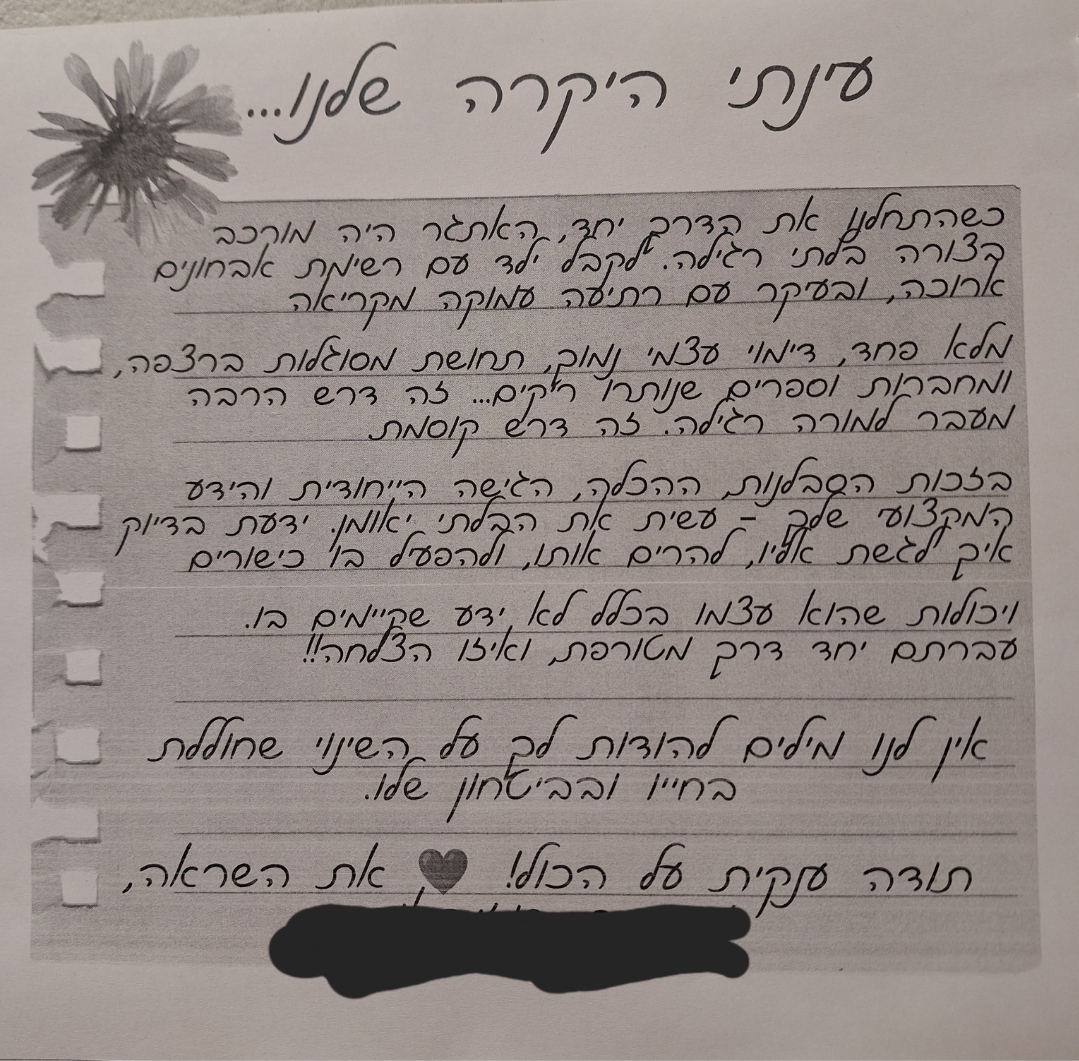 עינתי היקרה שלנו...
כשהתחלנו את הדרך יחד, האתגר היה מורכב
בצורה בלתי רגילה. לקבל ילד עם רשימת אבחונים
ארוכה, ובעיקר עם רתיעה עמוקה מקריאה
מלא פחד, דימוי עצמי נמוך, תחושת מסוגלות ברצפה,
ומחברות וספרים שנותרו ריקים... זה דרש הרבה
מעבר למורה רגילה. זה דרש קוסמת
בזכות הסבלנות, ההכלה, הגישה הייחודית והידע
המקצועי שלך - עשית את הבלתי יאומן. ידעת בדיוק
איך לגשת אליו, להרים אותו, ולהפעיל בו כישורים
ויכולות שהוא עצמו בכלל לא ידע שקיימים בו.
עברתם יחד דרך מטורפת, ואיזו הצלחה!!
אין לנו מילים להודות לך על השינוי שחוללת
בחייו ובביטחון שלו.
תודה ענקית על הכול! ♥ את השראה,